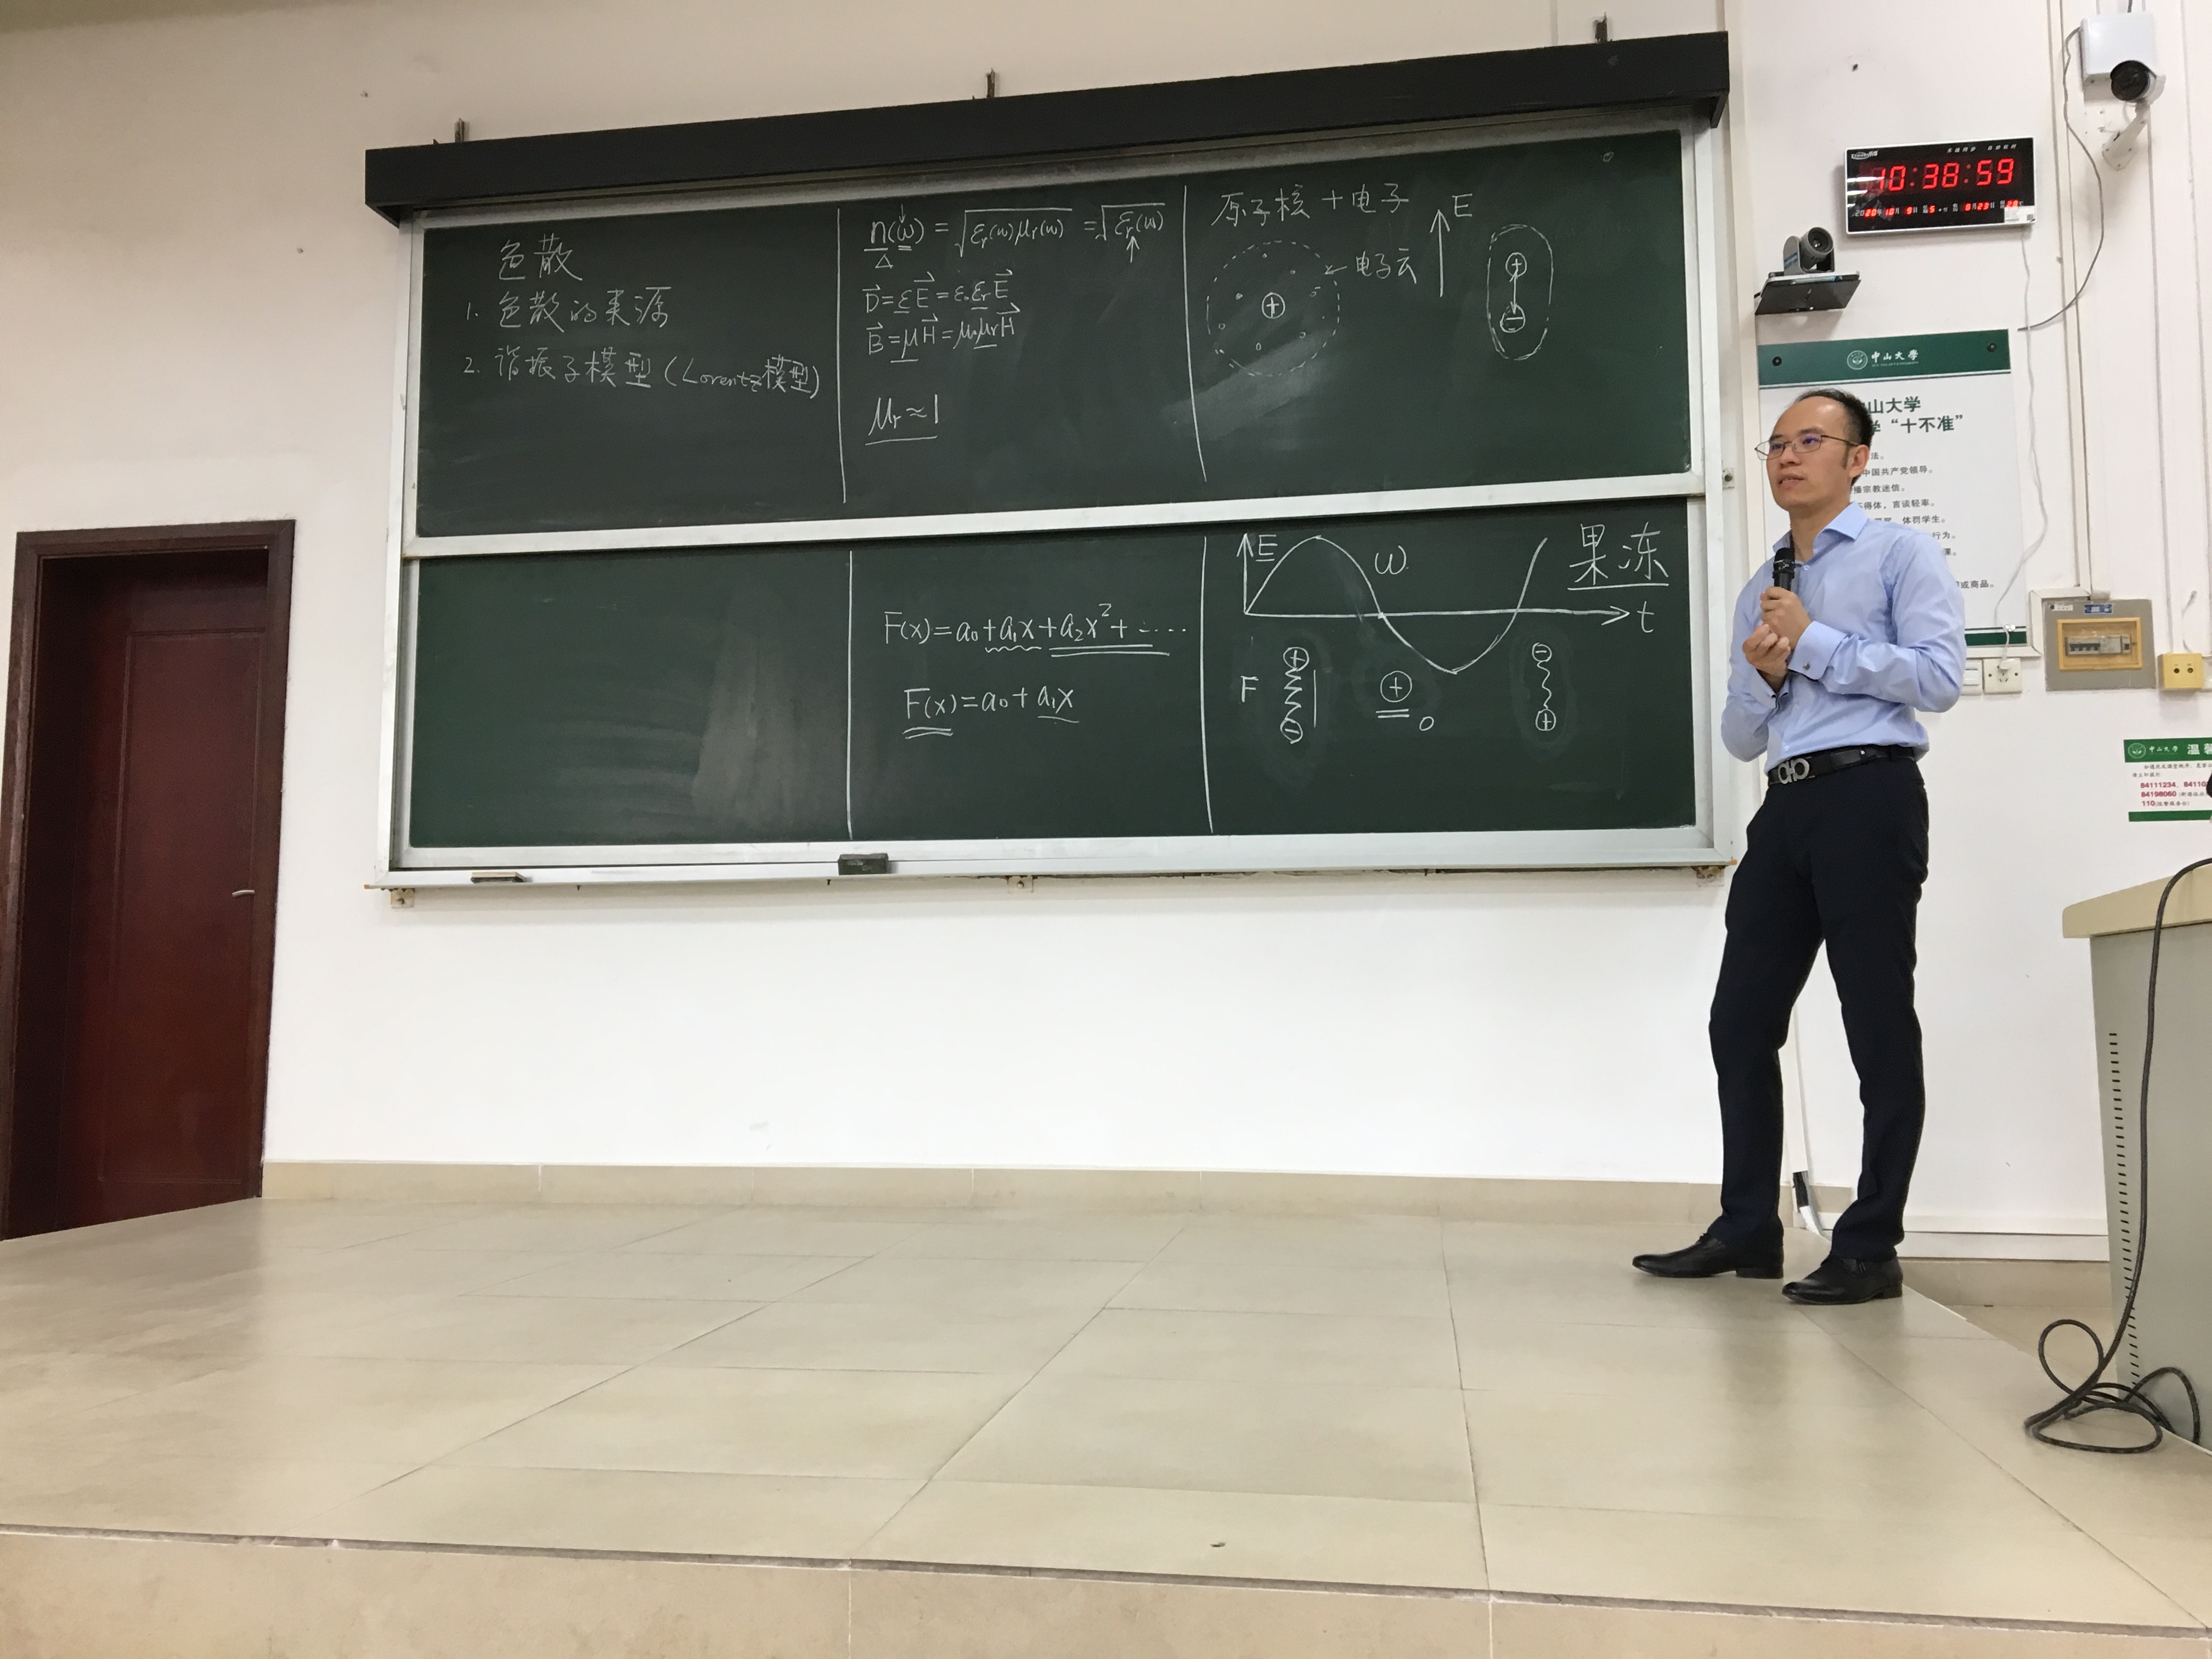 色散
1. 色散的来源
2. 谐振子模型(Lorentz模型)
n(ω) = √εr(ω)μr(ω) = √εr(ω)
D⃗=εE⃗=ε₀εrE⃗
B⃗=μH⃗=μ₀μrH⃗
μr≈1
原子核+电子
E
电子云
+
+
−
F(x)=a₀+a₁x+a₂x²+……
F(x)=a₀+a₁x
E
ω
果冻
t
F
+
−
+
0
−
+
10:38:59
2020 10 9 5 8 23
中山大学
山大学
学“十不准”
法。
中国共产党领导。
播宗教迷信。
不得体,言谈轻率。
体罚学生。
行为。
课。
或商品。
中山大学 温馨
84111234、84110
84198060
110